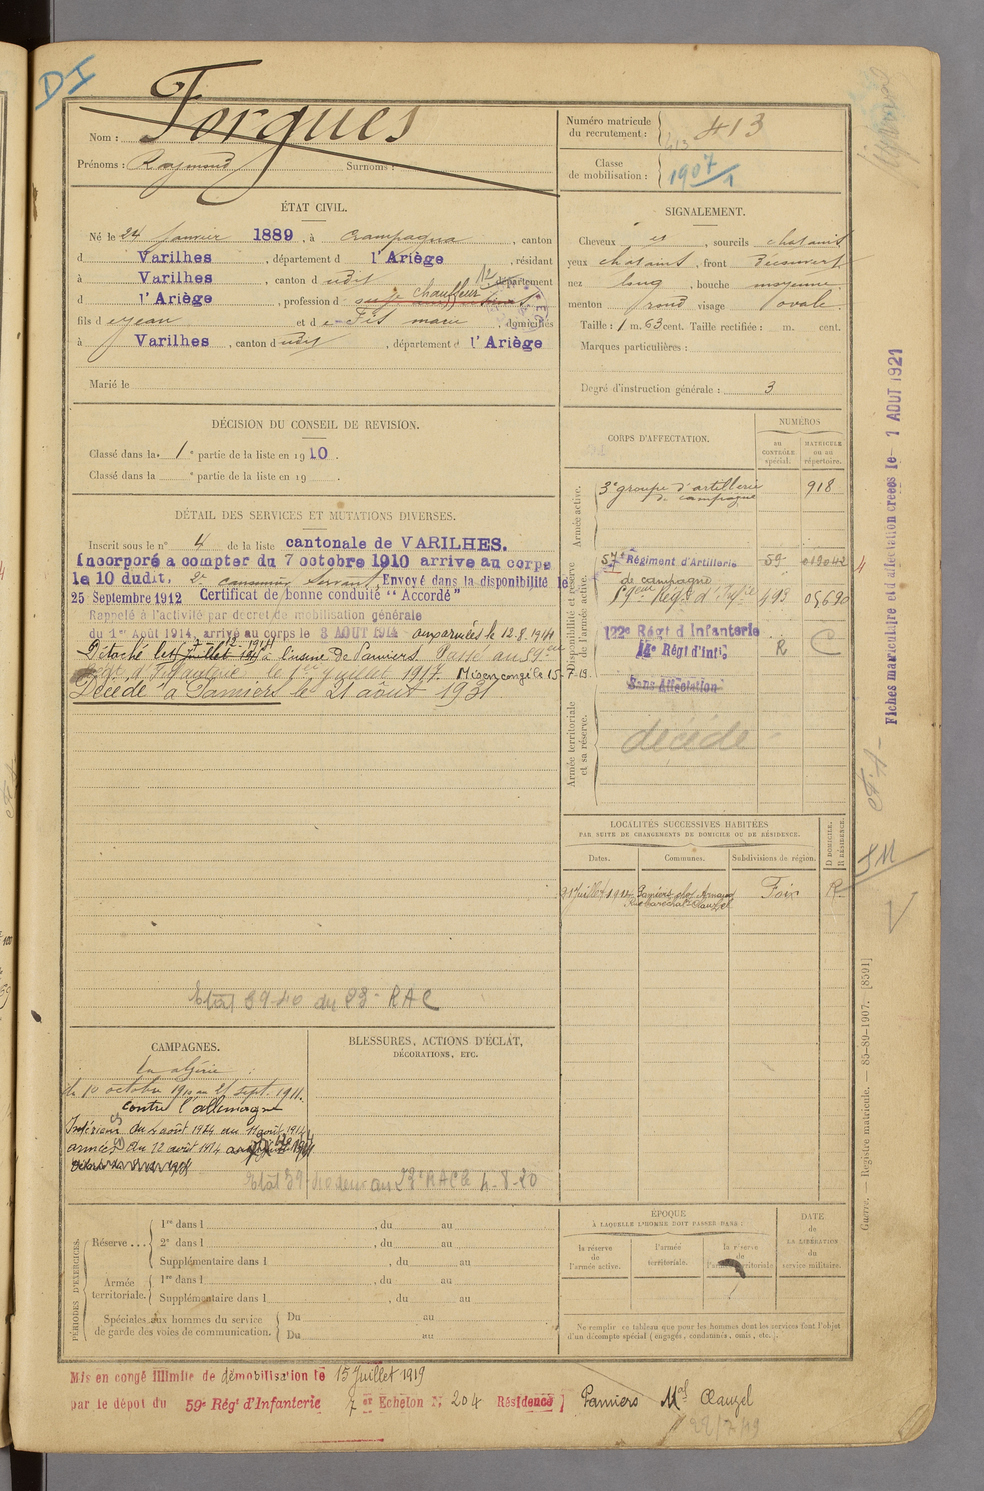 DI
Nom : Forgues
Prénoms : Raymond Surnoms :
Numéro matricule du recrutement : 413
413
Classe de mobilisation : 1907/1
ÉTAT CIVIL.
Né le 24 janvier 1889, à Crampagna, canton
d Varilhes, département d l'Ariège, résidant
à Varilhes, canton d udit, département
d l'Ariège, profession d chauffeur
fils d e Jean et d e Fis marie, domiciliés
à Varilhes, canton d udit, département d l'Ariège
Marié le
SIGNALEMENT.
Cheveux et, sourcils chatains
yeux chatains, front Découvert
nez long, bouche moyenne
menton rond visage ovale.
Taille : 1 m. 63 cent. Taille rectifiée : m. cent.
Marques particulières :
Degré d'instruction générale : 3
DÉCISION DU CONSEIL DE REVISION.
Classé dans la 1e partie de la liste en 1910.
Classé dans la e partie de la liste en 19 .
DÉTAIL DES SERVICES ET MUTATIONS DIVERSES.
Inscrit sous le n° 4 de la liste cantonale de VARILHES.
Incorporé a compter du 7 octobre 1910 arrive au corps
le 10 dudit, 2e canonnier Servant, Envoyé dans la disponibilité le
25 Septembre 1912 Certificat de bonne conduite "Accordé"
Rappelé à l'activité par decret de mobilisation générale
du 1er Août 1914, arrivé au corps le 3 AOUT 1914 aux armées le 12.8.1914
Détaché le 12.1914 à l'usine De Pamiers Passé au 59eme
Regt d'Infanterie le 1er juillet 1917. Mis en congé le 15-7-19.
Décédé à Pamiers le 21 août 1931
Etat 39-40 du 23e RAC
CORPS D'AFFECTATION.
NUMÉROS
au CONTRÔLE spécial.
MATRICULE ou au répertoire.
Armée active.
3e groupe d'artillerie de campagne 918
Disponibilité et réserve de l'armée active.
57e Régiment d'Artillerie de campagne 59
59eme Régt d'Infie 493 05690
122e Régt d'Infanterie
14e Régt d'Infie R C
Sans Affectation
Armée territoriale et sa réserve.
décédé
Fiches matriculaire et d'affectation créées le 1 AOUT 1921
LOCALITÉS SUCCESSIVES HABITÉES
PAR SUITE DE CHANGEMENTS DE DOMICILE OU DE RÉSIDENCE.
D DOMICILE. R RÉSIDENCE.
Dates. Communes. Subdivisions de région.
Juillet Pamiers chez Arnaud Foix R.
Rue Maréchal Clauzel
CAMPAGNES.
En algérie :
du 10 octobre 1910 au 21 sept. 1911.
contre l'allemagne
Intérieur du 4 août 1914 au 11 août 1914
armées du 12 août 1914 au
BLESSURES, ACTIONS D'ÉCLAT,
DÉCORATIONS, ETC.
Etat 39-40 au 23e RAC le 4-8-20
PÉRIODES D'EXERCICES.
Réserve...
1re dans l , du au
2e dans l , du au
Supplémentaire dans l , du au
Armée territoriale.
1re dans l , du au
Supplémentaire dans l , du au
Spéciales aux hommes du service de garde des voies de communication.
Du au
Du au
ÉPOQUE
À LAQUELLE L'HOMME DOIT PASSER DANS :
la réserve de l'armée active.
l'armée territoriale.
la réserve de l'armée territoriale
DATE de LA LIBÉRATION du service militaire.
Ne remplir ce tableau que pour les hommes dont les services font l'objet
d'un décompte spécial (engagés, condamnés, omis, etc.).
Guerre. — Registre matricule. — 85-89-1907. [8591]
Mis en congé illimité de démobilisation le 15 Juillet 1919
par le dépot du 59e Régt d'Infanterie 7er Echelon N° 204 Résidence Pamiers Mal Clauzel
22/7/19